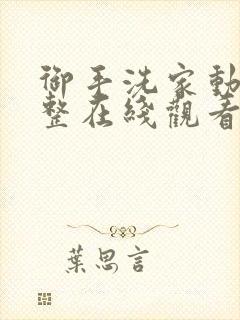 御手洗家動
整在綫觀看
葉思言